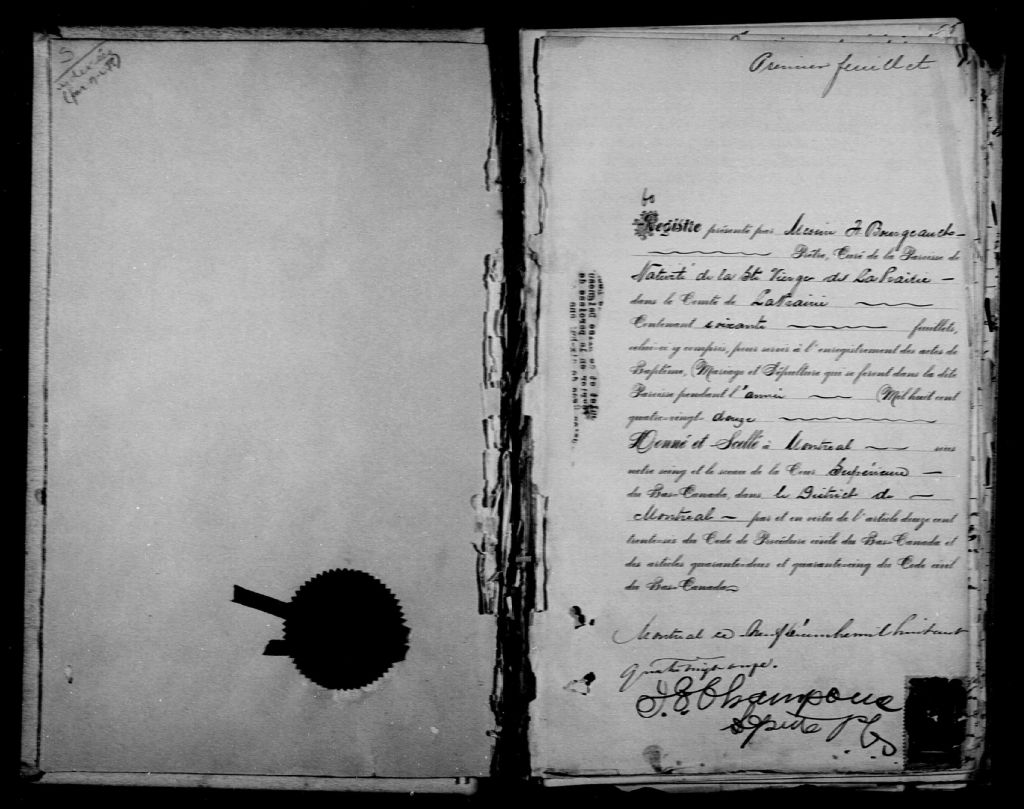 S
Premier feuillet
60
Registre présenté par Messire F. Bourgeault
Prêtre, Curé de la Paroisse de
Nativité de la Ste Vierge de LaPrairie
dans le Comté de LaPrairie
Contenant soixante feuillets,
celui-ci y compris, pour servir à l'enregistrement des actes de
Baptême, Mariage et Sépulture qui se feront dans la dite
Paroisse pendant l'année Mil huit cent
quatre-vingt douze
Donné et Scellé à Montreal sous
notre seing et le sceau de la Cour Supérieure
du Bas-Canada, dans le District de
Montreal par et en vertu de l'article douze cent
trente-six du Code de Procédure civile du Bas-Canada et
des articles quarante-deux et quarante-cinq du Code civil
du Bas-Canada
Montreal ce neuf décembre mil huit cent
quatre vingt onze.
Champoux